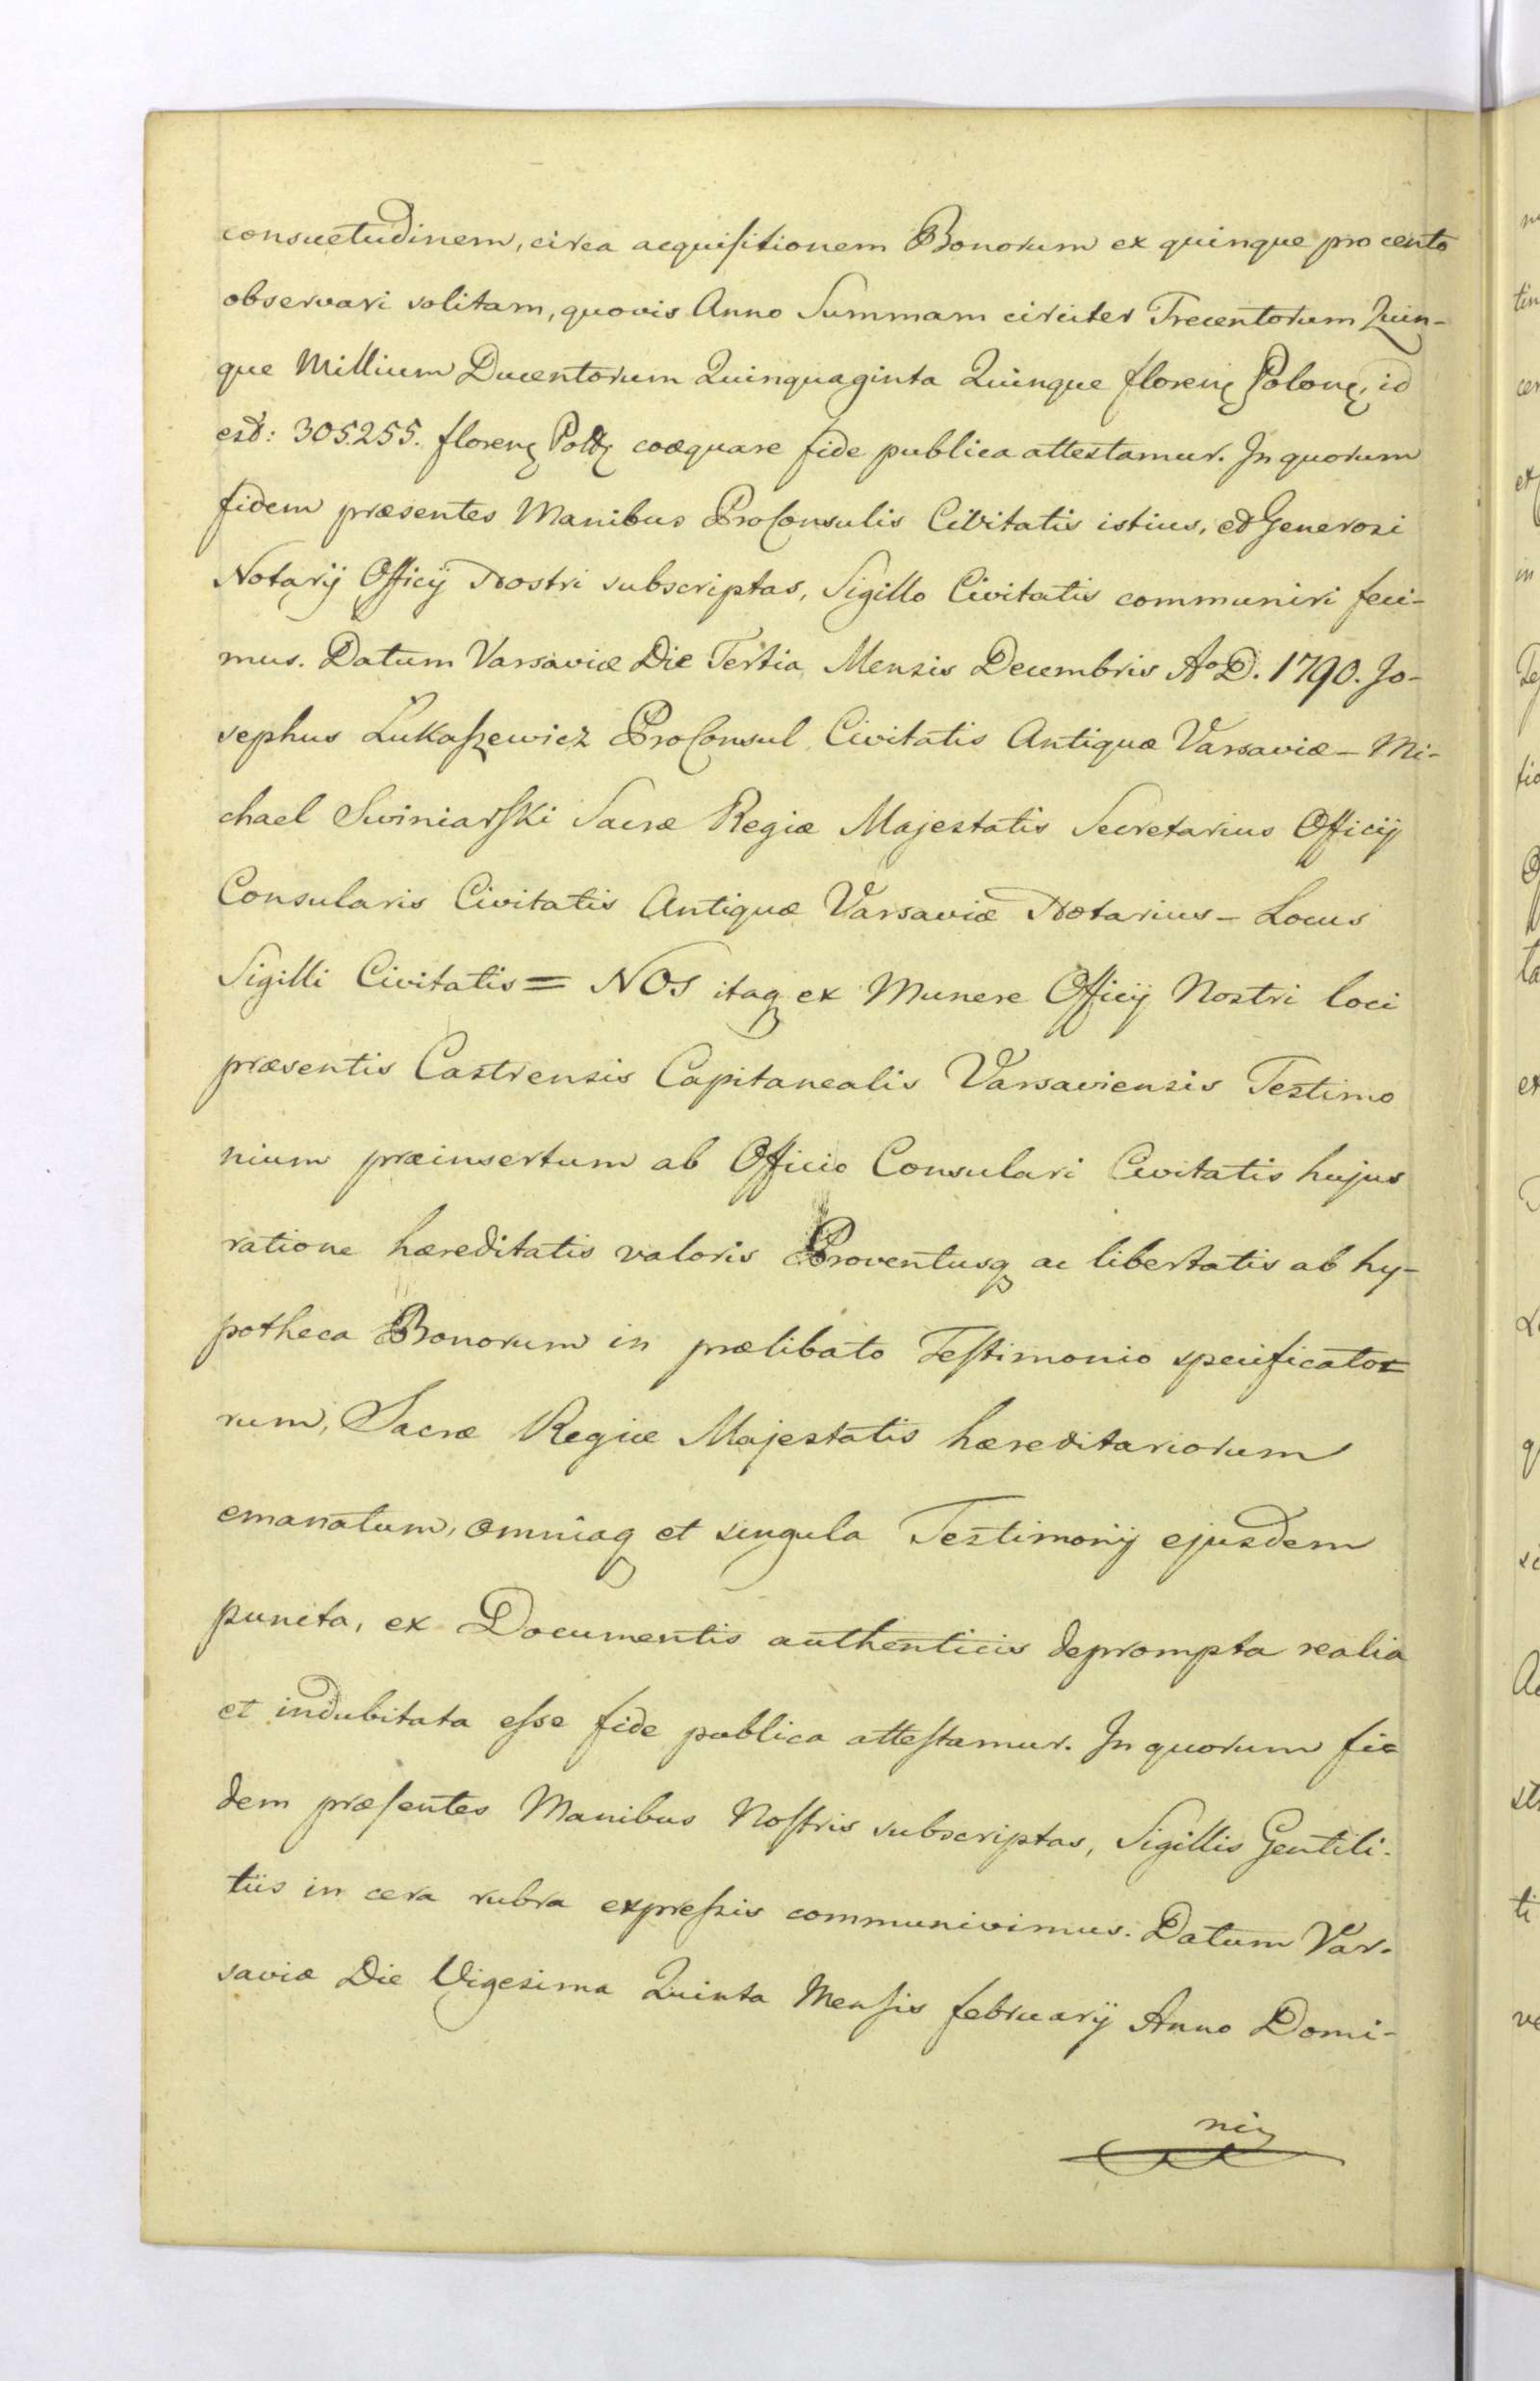 consuetudinem, circa acquisitionem Bonorum ex quinque pro cento
observari solitam, quovis Anno Summam circiter Trecentorum Quin-
que Millium Ducentorum Quinquaginta Quinque floren Polon, id
est: 305.255. floren Poll coæquare fide publica attestamur. In quorum
fidem præsentes Manibus ProConsulis Civitatis istius, et Generosi
Notarij Officij Nostri subscriptas, Sigillo Civitatis communiri feci-
mus. Datum Varsaviæ Die Tertia Mensis Decembris Ao D. 1790. Jo-
sephus Lukaszewicz ProConsul Civitatis Antiquæ Varsaviæ – Mi-
chael Swiniarski Sacræ Regiæ Majestatis Secretarius Officij
Consularis Civitatis Antiquæ Varsaviæ Notarius – Locus
Sigilli Civitatis = NOS itaq ex Munere Officij Nostri loci
præsentis Castrensis Capitanealis Varsaviensis Testimo
nium præinsertum ab Officio Consulari Civitatis hujus
ratione hæreditatis valoris Proventusq ac libertatis ab hy-
potheca Bonorum in prælibato Testimonio specificato=
rum, Sacræ Regiæ Majestatis hæreditariorum
emanatum, omniaq et singula Testimonij ejusdem
puncta, ex Documentis authenticis deprompta realia
et indubitata esse fide publica attestamur. In quorum fi=
dem præsentes Manibus Nostris subscriptas, Sigillis Gentili-
tiis in cera rubra expressis communivimus. Datum Var-
saviæ Die Vigesima Quinta Mensis februarij Anno Domi-
ni